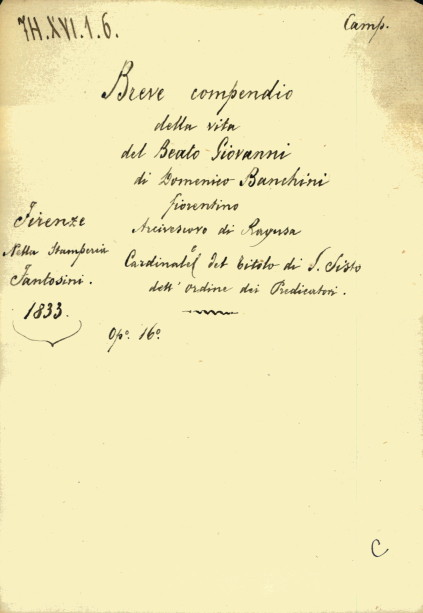 7H.XVI.1.6.
Camp.
Breve compendio
della vita
del Beato Giovanni
di Domenico Banchini
Fiorentino
Arcivescovo di Ragusa
Cardinale del titolo di S. Sisto
dell' ordine dei Predicatori.
Firenze
Nella Stamperia
Fantosini.
1833.
Opº. 16º.
C